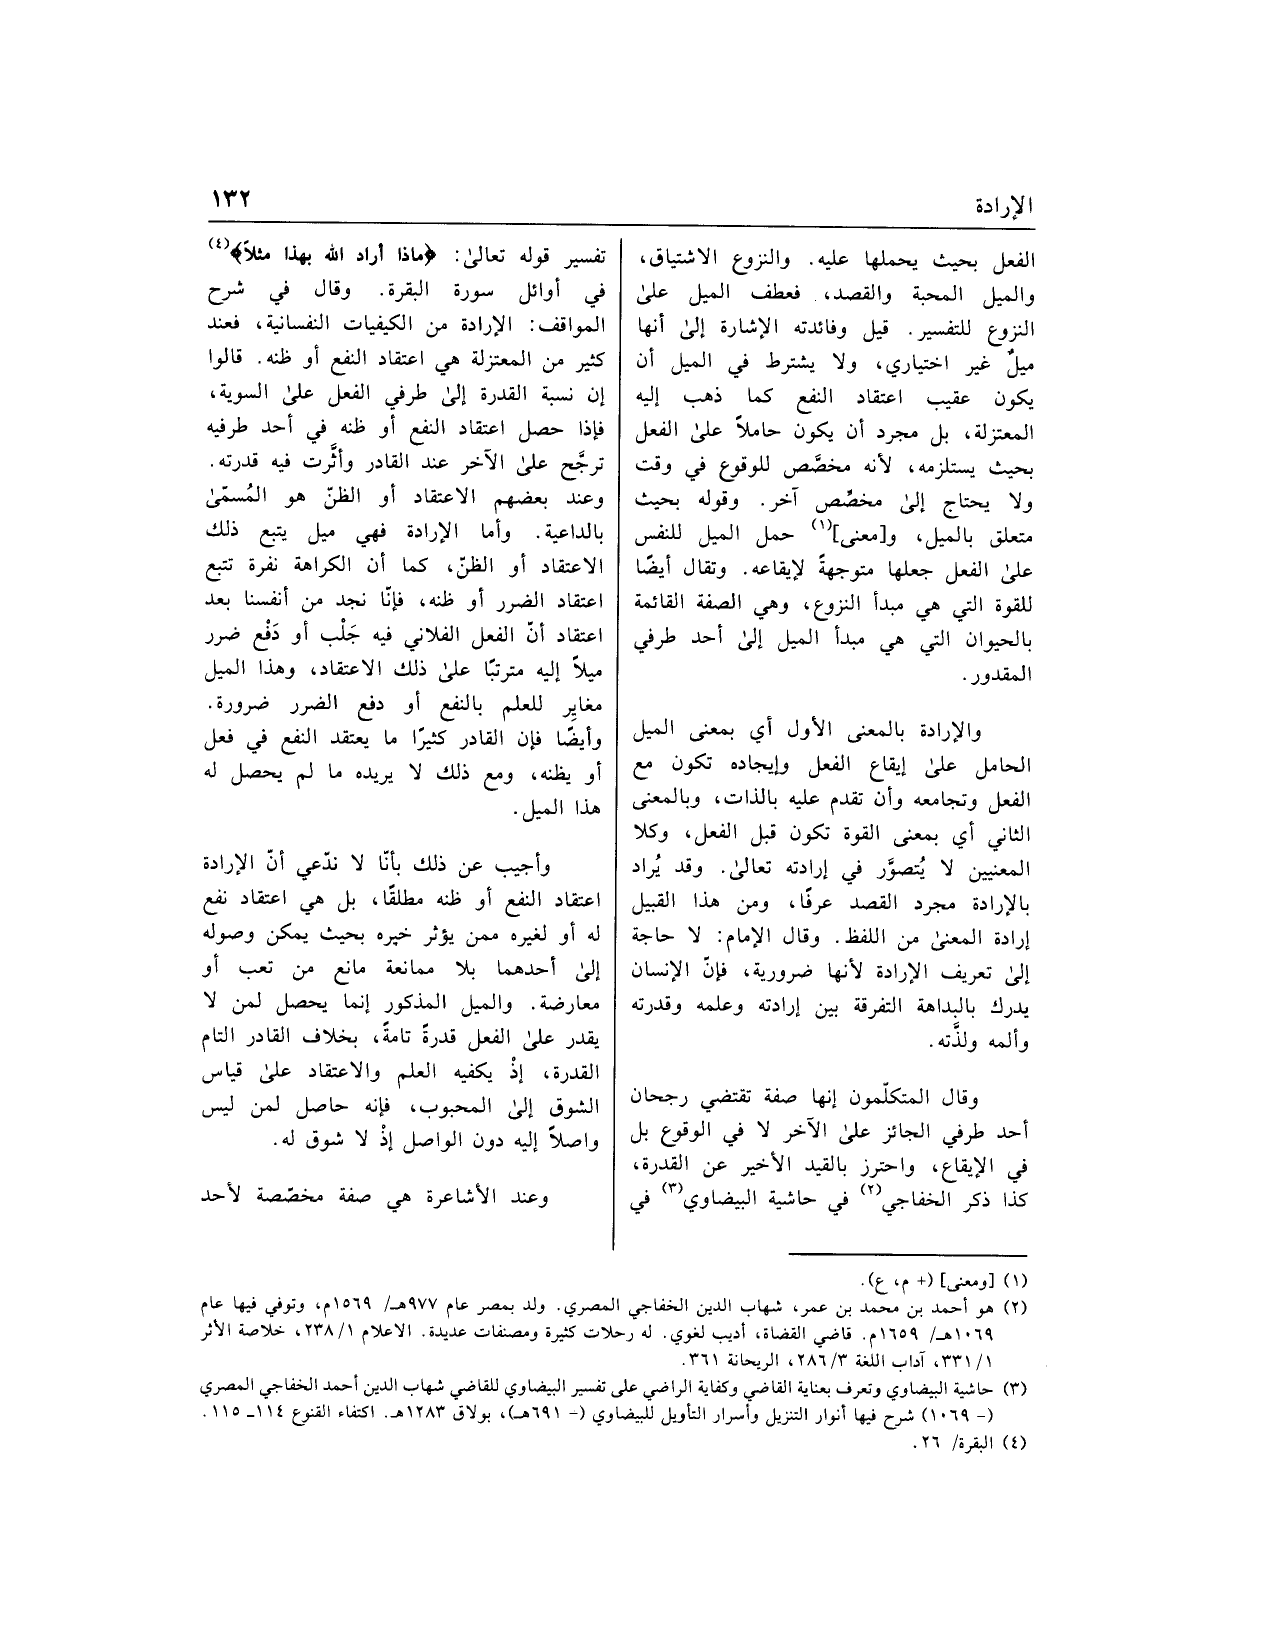 الإرادة
١٣٢
الفعل بحيث يحملها عليه. والنزوع الاشتياق،
والميل المحبة والقصد، فعطف الميل علىٰ
النزوع للتفسير. قيل وفائدته الإشارة إلىٰ أنها
ميلٌ غير اختياري، ولا يشترط في الميل أن
يكون عقيب اعتقاد النفع كما ذهب إليه
المعتزلة، بل مجرد أن يكون حاملاً علىٰ الفعل
بحيث يستلزمه، لأنه مخصَّص للوقوع في وقت
ولا يحتاج إلىٰ مخصِّص آخر. وقوله بحيث
متعلق بالميل، و[معنى](١) حمل الميل للنفس
علىٰ الفعل جعلها متوجهةً لإيقاعه. وتقال أيضًا
للقوة التي هي مبدأ النزوع، وهي الصفة القائمة
بالحيوان التي هي مبدأ الميل إلىٰ أحد طرفي
المقدور.
والإرادة بالمعنى الأول أي بمعنى الميل
الحامل علىٰ إيقاع الفعل وإيجاده تكون مع
الفعل وتجامعه وأن تقدم عليه بالذات، وبالمعنى
الثاني أي بمعنى القوة تكون قبل الفعل، وكلا
المعنيين لا يُتصوَّر في إرادته تعالىٰ. وقد يُراد
بالإرادة مجرد القصد عرفًا، ومن هذا القبيل
إرادة المعنىٰ من اللفظ. وقال الإمام: لا حاجة
إلىٰ تعريف الإرادة لأنها ضرورية، فإنّ الإنسان
يدرك بالبداهة التفرقة بين إرادته وعلمه وقدرته
وألمه ولذَّته.
وقال المتكلّمون إنها صفة تقتضي رجحان
أحد طرفي الجائز علىٰ الآخر لا في الوقوع بل
في الإيقاع، واحترز بالقيد الأخير عن القدرة،
كذا ذكر الخفاجي(٢) في حاشية البيضاوي(٣) في
تفسير قوله تعالىٰ: ﴿ماذا أراد الله بهذا مثلاً﴾(٤)
في أوائل سورة البقرة. وقال في شرح
المواقف: الإرادة من الكيفيات النفسانية، فعند
كثير من المعتزلة هي اعتقاد النفع أو ظنه. قالوا
إن نسبة القدرة إلىٰ طرفي الفعل علىٰ السوية،
فإذا حصل اعتقاد النفع أو ظنه في أحد طرفيه
ترجَّح علىٰ الآخر عند القادر وأثَّرت فيه قدرته.
وعند بعضهم الاعتقاد أو الظنّ هو المُسمّىٰ
بالداعية. وأما الإرادة فهي ميل يتبع ذلك
الاعتقاد أو الظنّ، كما أن الكراهة نفرة تتبع
اعتقاد الضرر أو ظنه، فإنّا نجد من أنفسنا بعد
اعتقاد أنّ الفعل الفلاني فيه جَلْب أو دَفْع ضرر
ميلاً إليه مترتبًا علىٰ ذلك الاعتقاد، وهذا الميل
مغايِر للعلم بالنفع أو دفع الضرر ضرورة.
وأيضًا فإن القادر كثيرًا ما يعتقد النفع في فعل
أو يظنه، ومع ذلك لا يريده ما لم يحصل له
هذا الميل.
وأجيب عن ذلك بأنّا لا ندّعي أنّ الإرادة
اعتقاد النفع أو ظنه مطلقًا، بل هي اعتقاد نفع
له أو لغيره ممن يؤثر خيره بحيث يمكن وصوله
إلىٰ أحدهما بلا ممانعة مانع من تعب أو
معارضة. والميل المذكور إنما يحصل لمن لا
يقدر علىٰ الفعل قدرةً تامةً، بخلاف القادر التام
القدرة، إذْ يكفيه العلم والاعتقاد علىٰ قياس
الشوق إلىٰ المحبوب، فإنه حاصل لمن ليس
واصلاً إليه دون الواصل إذْ لا شوق له.
وعند الأشاعرة هي صفة مخصّصة لأحد
(١) [ومعنى] (+ م، ع).
(٢) هو أحمد بن محمد بن عمر، شهاب الدين الخفاجي المصري. ولد بمصر عام ٩٧٧هـ/ ١٥٦٩م، وتوفي فيها عام
١٠٦٩هـ/ ١٦٥٩م. قاضي القضاة، أديب لغوي. له رحلات كثيرة ومصنفات عديدة. الاعلام ١/ ٢٣٨، خلاصة الأثر
١/ ٣٣١، آداب اللغة ٣/ ٢٨٦، الريحانة ٣٦١.
(٣) حاشية البيضاوي وتعرف بعناية القاضي وكفاية الراضي على تفسير البيضاوي للقاضي شهاب الدين أحمد الخفاجي المصري
(- ١٠٦٩) شرح فيها أنوار التنزيل وأسرار التأويل للبيضاوي (- ٦٩١هـ)، بولاق ١٢٨٣هـ. اكتفاء القنوع ١١٤ـ ١١٥.
(٤) البقرة/ ٢٦.